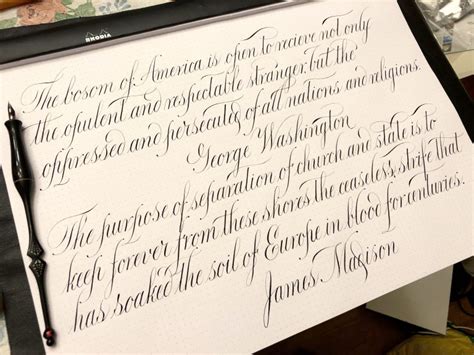 RHODIA
The bosom of America is open to recieve not only
the opulent and respectable stranger but the
oppressed and persecuted of all nations and religions.
George Washington
The purpose of separation of church and state is to
keep forever from these shores the ceaseless strife that
has soaked the soil of Europe in blood for centuries.
James Madison